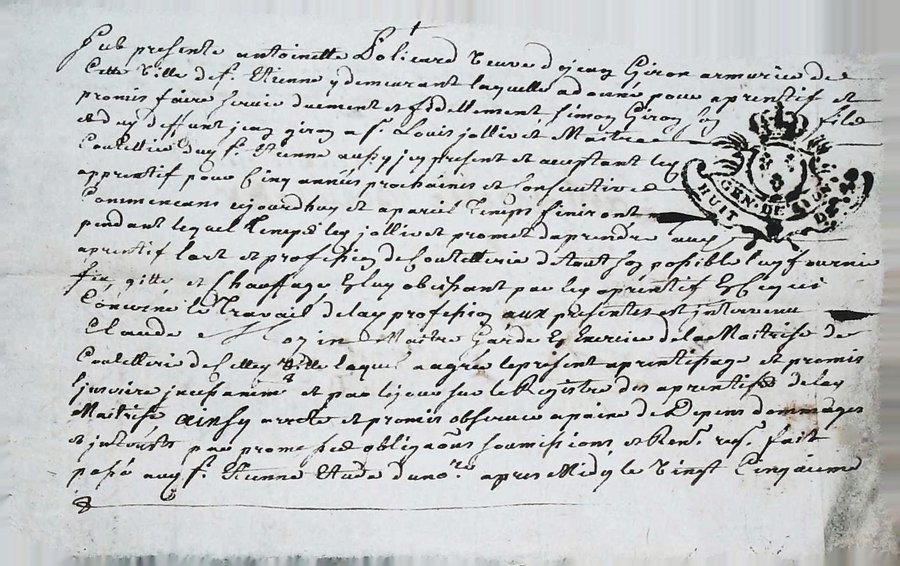 fut presente antoinette Loliard veuve de jean Giron armurier de
Cette Ville de st. Etienne y demeurant laquelle a donné pour aprentif et
promis faire servir duement et fidellement, simon Giron son fils
et du deffunt jean giron a sr. Louis jollivet Maitre
Coutellier dud st. Etienne aussy present et aceptant led
apprentif pour Cinq années prochaines et Consecutives
Commencans ajourdhuy et a pareil temps finiront
pendant lequel temps led jollivet promet daprendre aud
aprentif lart et profession de Coutellerie de tout son possible luy fournir
feu, gitte et Chauffage En luy obeissant par led aprentif En Ce qui
Concerne le Travail de lad profession aux presentes est intervenu
Claude Maitre Garde En Exercice de la Maitrise de
Coutellerie de Cette Ville lequel a agréé le present aprentissage et promis
linscrire sur le Registre des aprentifs de lad
Maitrise Ainsy arreté et promis observer a peine de Depens dommages
et interets par promesses obligaons soumissions et Renon. fait
passé aud st. Etienne Etude du nore. apres Midy le Vingt Cinquieme
HUIT D.
GEN. DE LION